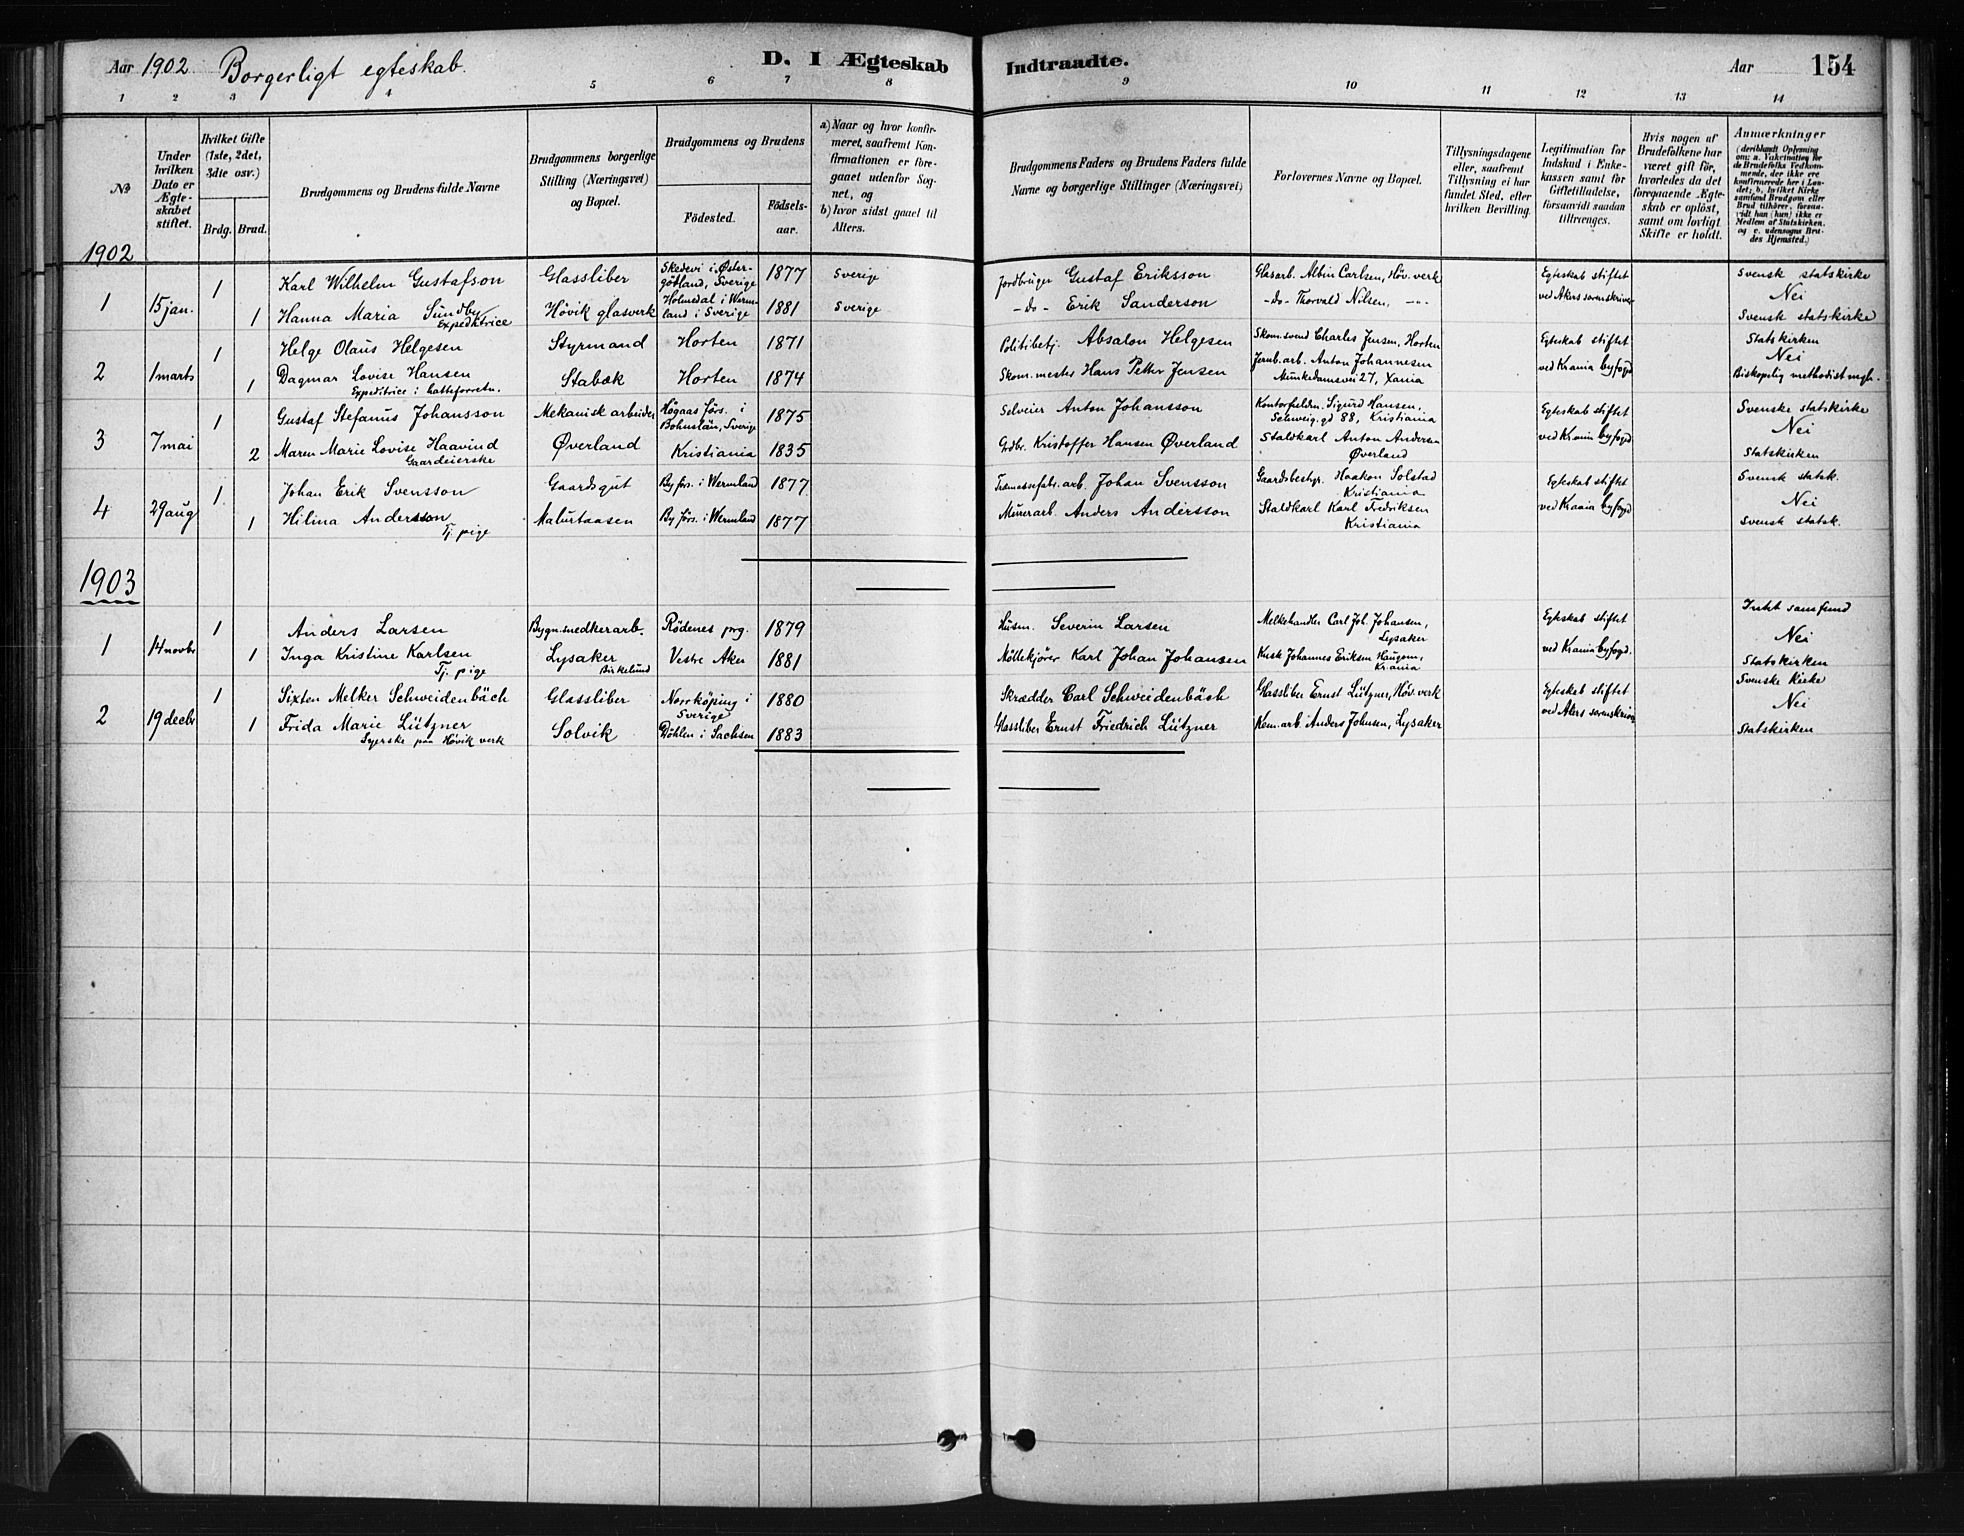 Aar 1902 Borgerligt egteskab. D. I Ægteskab Indtraadte. Aar 154
1 2 3 4 5 6 7 8 9 10 11 12 13 14
No
Under hvilken Dato er Ægte-skabet stiftet.
Hvilket Gifte (1ste, 2det, 3die osv.)
Brdg. Brud.
Brudgommens og Brudens fulde Navne
Brudgommens borgerlige Stilling (Næringsvei) og Bopæl.
Brudgommens og Brudens
Födested. Födsels-aar.
a) Naar og hvor konfir-meret, saafremt Kon-firmationen er fore-gaaet udenfor Sog-net, og
b) hvor sidst gaaet til Alters.
Brudgommens Faders og Brudens Faders fulde Navne og borgerlige Stillinger (Næringsvei)
Forlovernes Navne og Bopæl.
Tillysningsdagene eller, saafremt Tillysning ei har fundet Sted, efter hvilken Bevilling.
Legitimation for Indskud i Enke-kassen samt for Giftetilladelse, forsaavidt saadan tiltrænges.
Hvis nogen af Brudefolkene har været gift för, hvorledes da det foregaaende Ægte-skab er oplöst, samt om lovligt Skifte er holdt.
Anmærkninger (deriblandt Oplysning om: a. Vakcination for de Brudefolks Vedkom-mende, der ikke ere konfirmerede her i Lan-det; b. hvilket Kirke-samfund Brudgom eller Brud tilhörer, forsaa-vidt han (hun) ikke er Medlem af Statskirken, og c. udensogns Bru-des Hjemsted.)
1902
1 15 jan. 1 Karl Wilhelm Gustafson Glassliber Skedevi i Øster-götland, Sverige 1877 Sverige Jordbruger Gustaf Eriksson Glasarb. Albin Carlsen, Höv. verk Egteskab stiftet Svensk statskirke
Nei
1 Hanna Maria Sundby Expeditrice Høvik glasverk Holmedal i Werm-land i Sverige 1881 Sverige -Do- Erik Sanderson -Do- Thorvald Nilsen, -"- ved Akers sorenskriver Svensk statskirke
2 1 marts 1 Helge Olaus Helgesen Styrmand Horten 1871 Politibetj. Absalon Helgesen Skom.svend Charles Jensen, Horten Egteskab stiftet Statskirken
Nei
1 Dagmar Lovise Hansen Expeditrice i hatteforretn. Stabæk Horten 1874 Skom.mester Hans Petter Jensen Jernb.arb. Anton Johannesen Munkedamsvei 27, Xania ved Krania byfogd Biskopelig methodist mgh.
3 7 mai 1 Gustaf Stefanus Johansson Mekanisk arbeider Högaas förs. i Bohuslän, Sverige 1875 Selveier Anton Johansson Kontorfuldm. Sigurd Hansen, Schweig.gd 88, Kristiania Egteskab stiftet Svenske statskirke
Nei
2 Maren Marie Lovise Haavind Gaardeierske Øverland Kristiania 1835 Grdbr. Kristoffer Hansen Øverland Staldkarl Anton Andersen Øverland ved Krania byfogd Statskirken
4 29 aug 1 Johan Erik Svensson Gaardsgut By förs. i Wermland 1877 Johan Svensson Gaardsbestyr. Haakon Solstad Kristiania Egteskab stiftet Svensk statsk.
Nei
1 Hilina Andersson Tj. pige By förs. i Wermland 1877 Murerarb. Anders Andersson Staldkarl Karl Fredriksen Kristiania ved Krania byfogd Svensk statsk.
1903
1 14 novbr 1 Anders Larsen Bygn.snedkerarb. Rödenes prg. 1879 Husm. Severin Larsen Melkehandler Carl Joh. Johansen, Lysaker Egteskab stiftet samfund
Nei
1 Inga Kristine Karlsen Tj. pige Lysaker Birkelund Vestre Aker 1881 Möllekjörer Karl Johan Johansen Kusk Johannes Eriksen Haugom, Krania ved Krania byfogd. Statskirken
2 19 decbr 1 Sixten Melker Schweidenbäch Glassliber Norrköping i Sverige 1880 Skrædder Carl Schweidenbäch Glassliber Ernst Lützner, Höv. verk Egteskab stiftet Svenske Kirke
Nei
1 Frida Marie Lützner Syerske paa Høvik verk Solvik Döhlen i Sachsen 1883 Glassliber Ernst Friedrich Lützner Kem.arb. Anders Johnsen, Lysaker ved Akers sorenskriver Statskirken